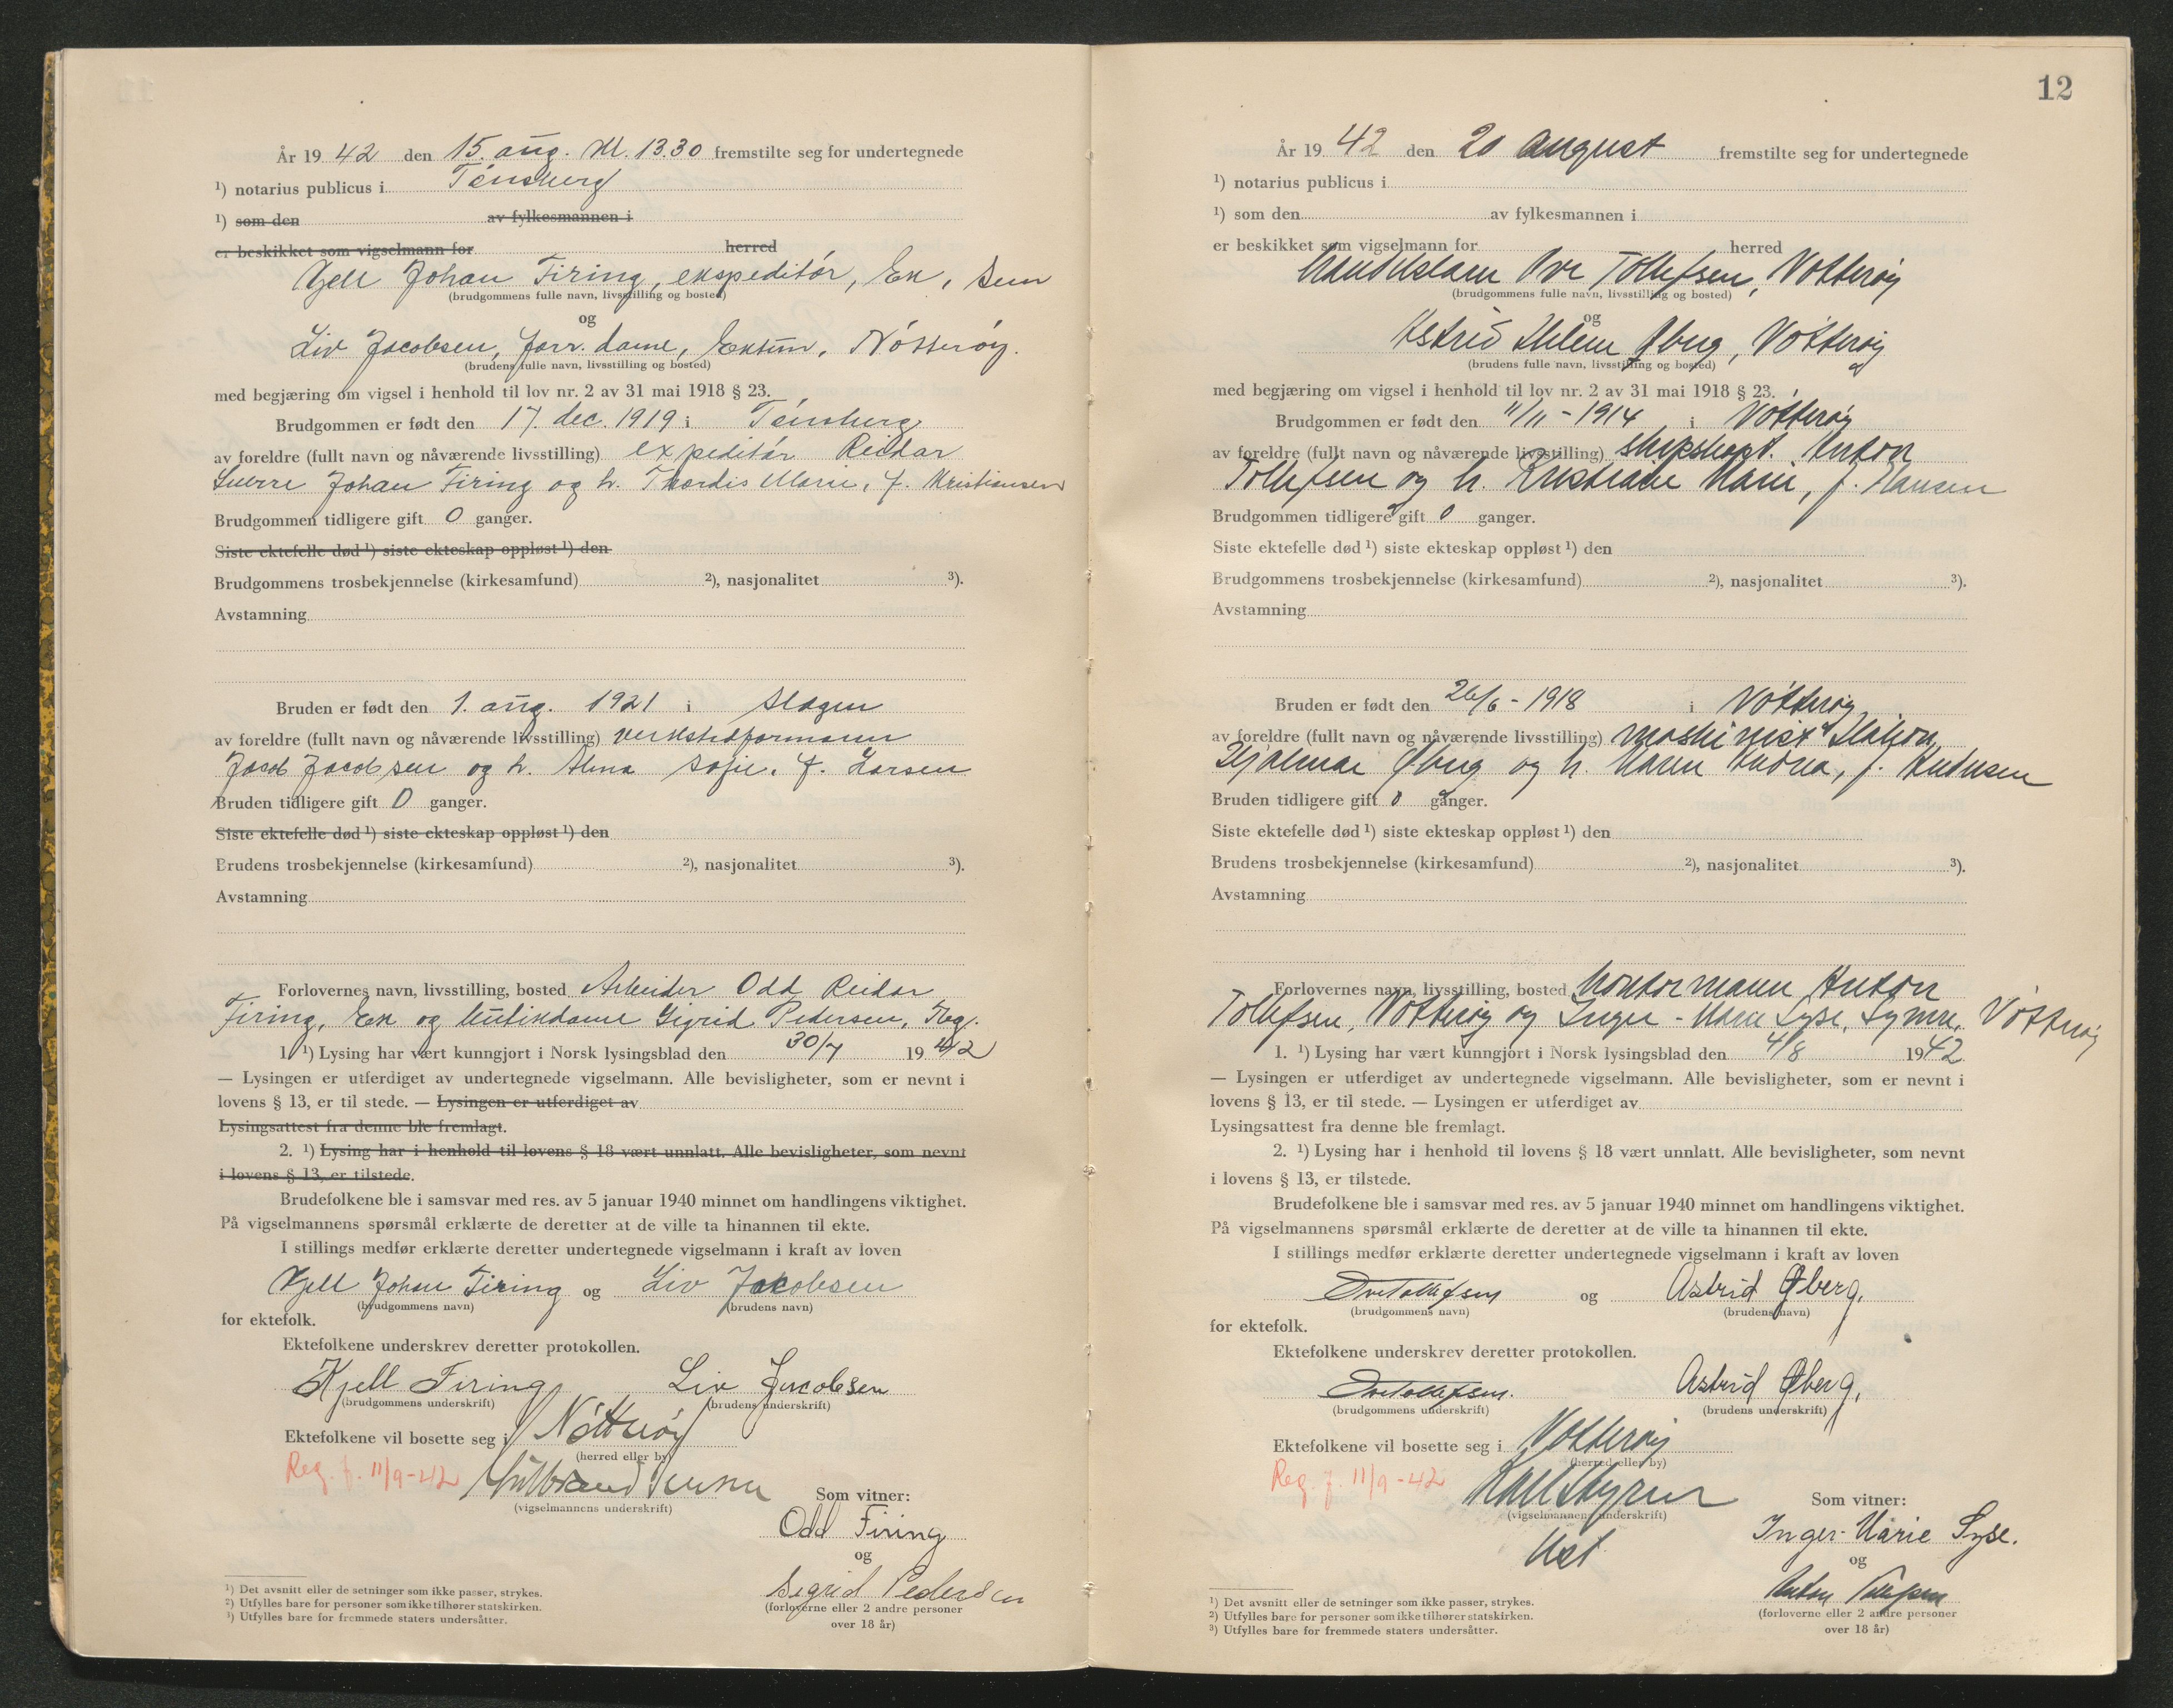 År 19 42 den 15. aug. kl. 13.30 fremstilte seg for undertegnede
¹) notarius publicus i Tønsberg
¹) som den av fylkesmannen i
er beskikket som vigselmann for herred
Kjell Johan Firing, ekspeditør, Ek, Sem
(brudgommens fulle navn, livsstilling og bosted)
og
Liv Jacobsen, forr. dame, Eknes, Nøtterøy.
(brudens fulle navn, livsstilling og bosted)
med begjæring om vigsel i henhold til lov nr. 2 av 31 mai 1918 § 23.
Brudgommen er født den 17. dec. 1919 i Tønsberg
av foreldre (fullt navn og nåværende livsstilling) expeditør Reidar
Sverre Johan Firing og h. Thordis Marie, f. Kristiansen
Brudgommen tidligere gift 0 ganger.
Siste ektefelle død ¹) siste ekteskap oppløst ¹) den
Brudgommens trosbekjennelse (kirkesamfund) ²), nasjonalitet ³).
Avstamning
Bruden er født den 1. aug. 1921 i Slagen
av foreldre (fullt navn og nåværende livsstilling) verkstedformann
Jacob Jacobsen og h. Alma Sofie, f. Larsen
Bruden tidligere gift 0 ganger.
Siste ektefelle død ¹) siste ekteskap oppløst ¹) den
Brudens trosbekjennelse (kirkesamfund) ²), nasjonalitet ³).
Avstamning
Forlovernes navn, livsstilling, bosted Arbeider Odd Reidar
Firing, Ek og butikdame Sigrid Pedersen, Tbg.
1. ¹) Lysing har vært kunngjort i Norsk lysingsblad den 30/7 1942
— Lysingen er utferdiget av undertegnede vigselmann. Alle bevisligheter, som er nevnt i
lovens § 13, er til stede. — Lysingen er utferdiget av
Lysingsattest fra denne ble fremlagt.
2. ¹) Lysing har i henhold til lovens § 18 vært unnlatt. Alle bevisligheter, som nevnt
i lovens § 13, er tilstede.
Brudefolkene ble i samsvar med res. av 5 januar 1940 minnet om handlingens viktighet.
På vigselmannens spørsmål erklærte de deretter at de ville ta hinannen til ekte.
I stillings medfør erklærte deretter undertegnede vigselmann i kraft av loven
Kjell Johan Firing og Liv Jakobsen
(brudgommens navn) (brudens navn)
for ektefolk.
Ektefolkene underskrev deretter protokollen.
Kjell Firing Liv Jacobsen
(brudgommens underskrift) (brudens underskrift)
Ektefolkene vil bosette seg i Nøtterøy
(herred eller by)
Reg. f. 11/9-42
(vigselmannens underskrift)
Som vitner:
Odd Firing
og
Sigrid Pedersen
(forloverne eller 2 andre personer
over 18 år)
¹) Det avsnitt eller de setninger som ikke passer, strykes.
²) Utfylles bare for personer som ikke tilhører statskirken.
³) Utfylles bare for fremmede staters undersåtter.
12
År 19 42 den 20 august fremstilte seg for undertegnede
¹) notarius publicus i
¹) som den av fylkesmannen i
er beskikket som vigselmann for herred
Ove Tollefsen, Nøtterøy
(brudgommens fulle navn, livsstilling og bosted)
og
Astrid Helene Øberg, Nøtterøy
(brudens fulle navn, livsstilling og bosted)
med begjæring om vigsel i henhold til lov nr. 2 av 31 mai 1918 § 23.
Brudgommen er født den 11/11-1914 i Nøtterøy
av foreldre (fullt navn og nåværende livsstilling) skipskapt. Anton
Tollefsen og h. Kristiane Marie, f. Hansen
Brudgommen tidligere gift 0 ganger.
Siste ektefelle død ¹) siste ekteskap oppløst ¹) den
Brudgommens trosbekjennelse (kirkesamfund) ²), nasjonalitet ³).
Avstamning
Bruden er født den 26/6-1918 i Nøtterøy
av foreldre (fullt navn og nåværende livsstilling) maskinist
Hjalmar Øberg og h. Maren Andrea, f. Andersen
Bruden tidligere gift 0 ganger.
Siste ektefelle død ¹) siste ekteskap oppløst ¹) den
Brudens trosbekjennelse (kirkesamfund) ²), nasjonalitet ³).
Avstamning
Forlovernes navn, livsstilling, bosted kontormann Anton
Tollefsen, Nøtterøy og Inger-Marie Syse, Nøtterøy
1. ¹) Lysing har vært kunngjort i Norsk lysingsblad den 4/8 1942
— Lysingen er utferdiget av undertegnede vigselmann. Alle bevisligheter, som er nevnt i
lovens § 13, er til stede. — Lysingen er utferdiget av
Lysingsattest fra denne ble fremlagt.
2. ¹) Lysing har i henhold til lovens § 18 vært unnlatt. Alle bevisligheter, som nevnt
i lovens § 13, er tilstede.
Brudefolkene ble i samsvar med res. av 5 januar 1940 minnet om handlingens viktighet.
På vigselmannens spørsmål erklærte de deretter at de ville ta hinannen til ekte.
I stillings medfør erklærte deretter undertegnede vigselmann i kraft av loven
Ove Tollefsen og Astrid Øberg.
(brudgommens navn) (brudens navn)
for ektefolk.
Ektefolkene underskrev deretter protokollen.
Ove Tollefsen. Astrid Øberg.
(brudgommens underskrift) (brudens underskrift)
Ektefolkene vil bosette seg i Nøtterøy
(herred eller by)
Reg. f. 11/9-42
(vigselmannens underskrift)
Som vitner:
Inger-Marie Syse.
og
Anton Tollefsen
(forloverne eller 2 andre personer
over 18 år)
¹) Det avsnitt eller de setninger som ikke passer, strykes.
²) Utfylles bare for personer som ikke tilhører statskirken.
³) Utfylles bare for fremmede staters undersåtter.